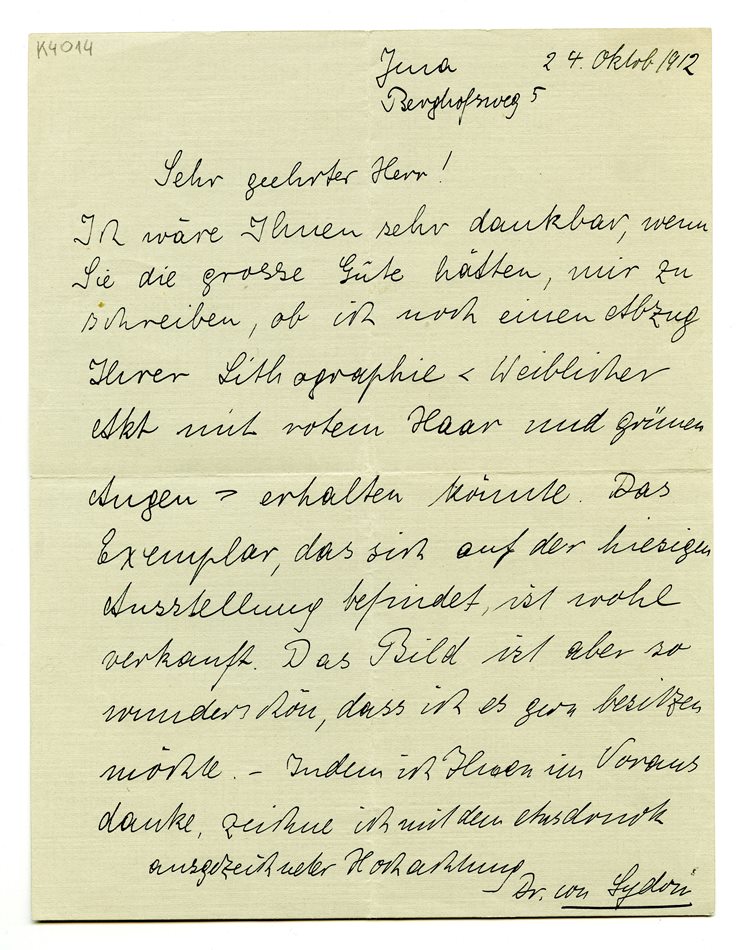 K4014
Jena 24. Oktob 1912
Berghofsweg 5
Sehr geehrter Herr!
Ich wäre Ihnen sehr dankbar, wenn
Sie die grosse Güte hätten, mir zu
schreiben, ob ich noch einen Abzug
Ihrer Lithographie < Weiblicher
Akt mit rotem Haar und grünen
Augen > erhalten könnte. Das
Exemplar, das sich auf der hiesigen
Ausstellung befindet, ist wohl
verkauft. Das Bild ist aber so
wunderschön, dass ich es gern besitzen
möchte. – Indem ich Ihnen im Voraus
danke, zeichne ich mit dem Ausdruck
ausgezeichneter Hochachtung
Dr. von